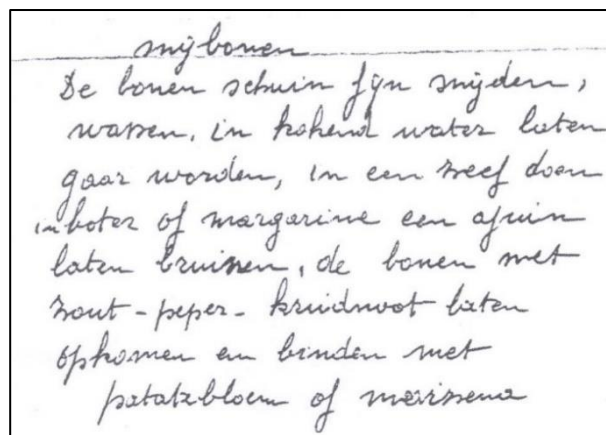 snijbonen
De bonen schuin fijn snijden,
wassen, in kokend water laten
gaar worden, in een zeef doen
in boter of margarine een ajuin
laten bruinen, de bonen met
zout - peper - kruidnoot laten
opkomen en binden met
patatebloem of maïzena